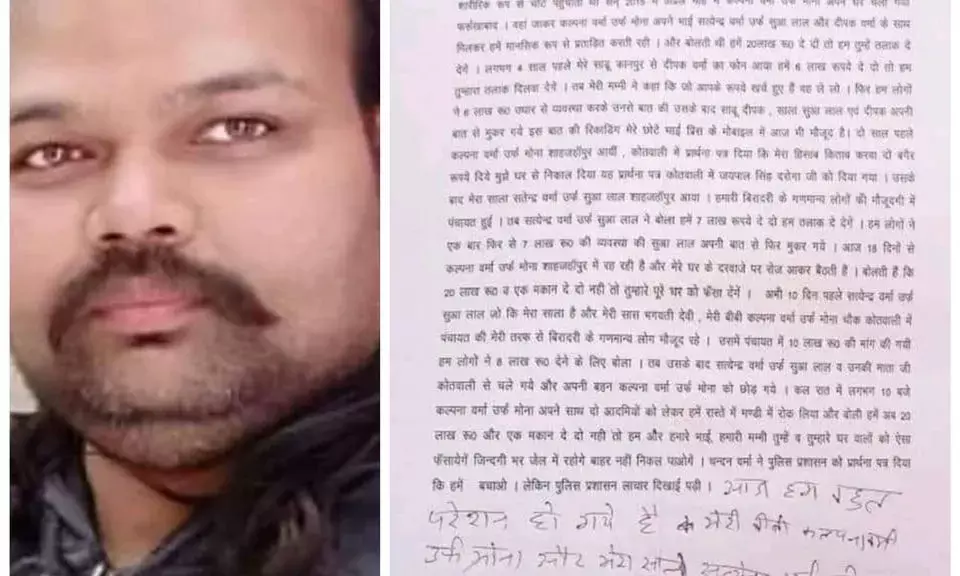 शारीरिक रूप से चोट पहुंचाती थी सन् 2015 में कल्पना वर्मा उर्फ मोना अपने घर चली गयी
फर्रुखाबाद । वहां जाकर कल्पना वर्मा उर्फ मोना अपने भाई सत्येन्द्र वर्मा उर्फ सुआ लाल और दीपक वर्मा के साथ
मिलकर हमें मानसिक रूप से प्रताडित करती रही । और बोलती थी हमें 20लाख रू0 दे दो तो हम तुम्हें तलाक दे
देगें । लगभग 4 साल पहले मेरे साढू कानपुर से दीपक वर्मा का फोन आया हमें 6 लाख रूपये दे दो तो हम
तुम्हारा तलाक दिलवा देगें । तब मेरी मम्मी ने कहा कि जो आपके रूपये खर्च हुए है वह ले लो । फिर हम लोगों
ने 6 लाख रू0 उधार से व्यवस्था करके उनसे बात की उसके बाद साढू दीपक , साला सुआ लाल एवं दीपक अपनी
बात से मुकर गये इस बात की रिकार्डिंग मेरे छोटे भाई प्रिंस के मोबाइल में आज भी मौजूद है। दो साल पहले
कल्पना वर्मा उर्फ मोना शाहजहाँपुर आयीं , कोतवाली में प्रार्थना पत्र दिया कि मेरा हिसाब किताब करवा दो बगैर
रूपये दिये मुझे घर से निकाल दिया यह प्रार्थना पत्र कोतवाली में जयपाल सिंह दरोगा जी को दिया गया । उसके
बाद मेरा साला सतेन्द्र वर्मा उर्फ सुआ लाल शाहजहाँपुर आया । हमारी बिरादरी के गणमान्य लोगों की मौजूदगी में
पंचायत हुई । तब सत्येन्द्र वर्मा उर्फ सुआ लाल ने बोला हमें 7 लाख रूपये दे दो हम तलाक दे देगें । हम लोगों ने
एक बार फिर से 7 लाख रू0 की व्यवस्था की सुआ लाल अपनी बात से फिर मुकर गये । आज 18 दिनों से
कल्पना वर्मा उर्फ मोना शाहजहाँपुर में रह रही है और मेरे घर के दरवाजे पर रोज आकर बैठती है । बोलती है कि
20 लाख रू0 व एक मकान दे दो नही तो तुम्हारे पूरे घर को फँसा देगें । अभी 10 दिन पहले सत्येन्द्र वर्मा उर्फ
सुआ लाल जो कि मेरा साला है और मेरी सास भगवती देवी , मेरी बीबी कल्पना वर्मा उर्फ मोना चौक कोतवाली में
पंचायत की मेरी तरफ से बिरादरी के गणमान्य लोग मौजूद रहे । उसमें पंचायत में 10 लाख रू0 की मांग की गयी
हम लोगों ने 8 लाख रू0 देने के लिए बोला । तब उसके बाद सत्येन्द्र वर्मा उर्फ सुआ लाल व उनकी माता जी
कोतवाली से चले गये और अपनी बहन कल्पना वर्मा उर्फ मोना को छोड़ गये । कल रात में लगभग 10 बजे
कल्पना वर्मा उर्फ मोना अपने साथ दो आदमियों को लेकर हमें रास्ते में मण्डी में रोक लिया और बोली हमें अब 20
लाख रू0 और एक मकान दे दो नही तो हम और हमारे भाई, हमारी मम्मी तुम्हें व तुम्हारे घर वालों को ऐसा
फँसायेगें जिन्दगी भर जेल में रहोगे बाहर नहीं निकल पाओगें । चन्दन वर्मा ने पुलिस प्रशासन को प्रार्थना पत्र दिया
कि हमें बचाओ । लेकिन पुलिस प्रशासन लाचार दिखाई पड़ी । आज हम बहुत
परेशान हो गये है मेरी बीबी कल्पना वर्मा
उर्फ मोना और मेरा साला